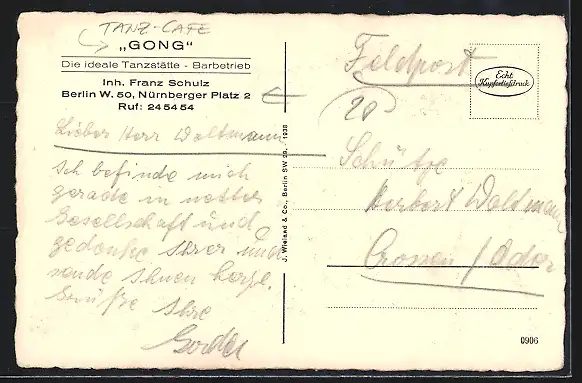 TANZ-CAFE
„GONG“
Die ideale Tanzstätte - Barbetrieb
Inh. Franz Schulz
Berlin W. 50, Nürnberger Platz 2
Ruf: 245454
Lieber Herr Waltmann
Ich befinde mich
gerade in netter
Gesellschaft und
gedenke Ihrer und
sende Ihnen herzl.
Grüße Ihre
J. Wieland & Co., Berlin SW 29. 1938
Feldpost
Echt
Kupfertiefdruck
20
Schütze
Herbert Waltmann
Crossen / Oder
0906